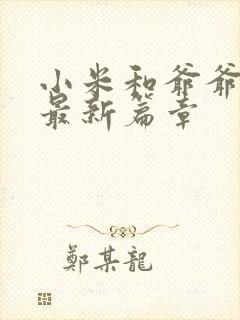 小米和爺爺
最新篇章
鄭某龍